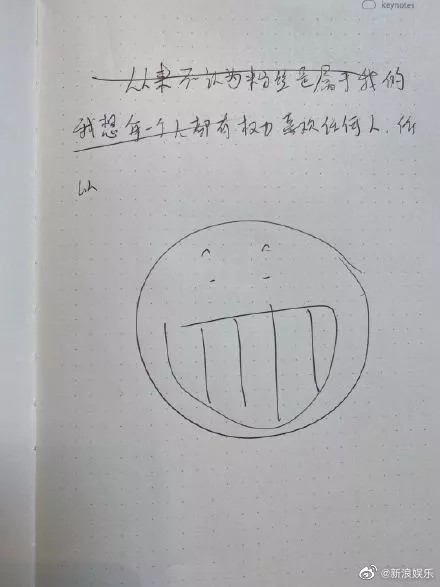 keynotes
从来不认为粉丝是属于我的
我想每一个人都有权力喜欢任何人、任
以
@新浪娱乐